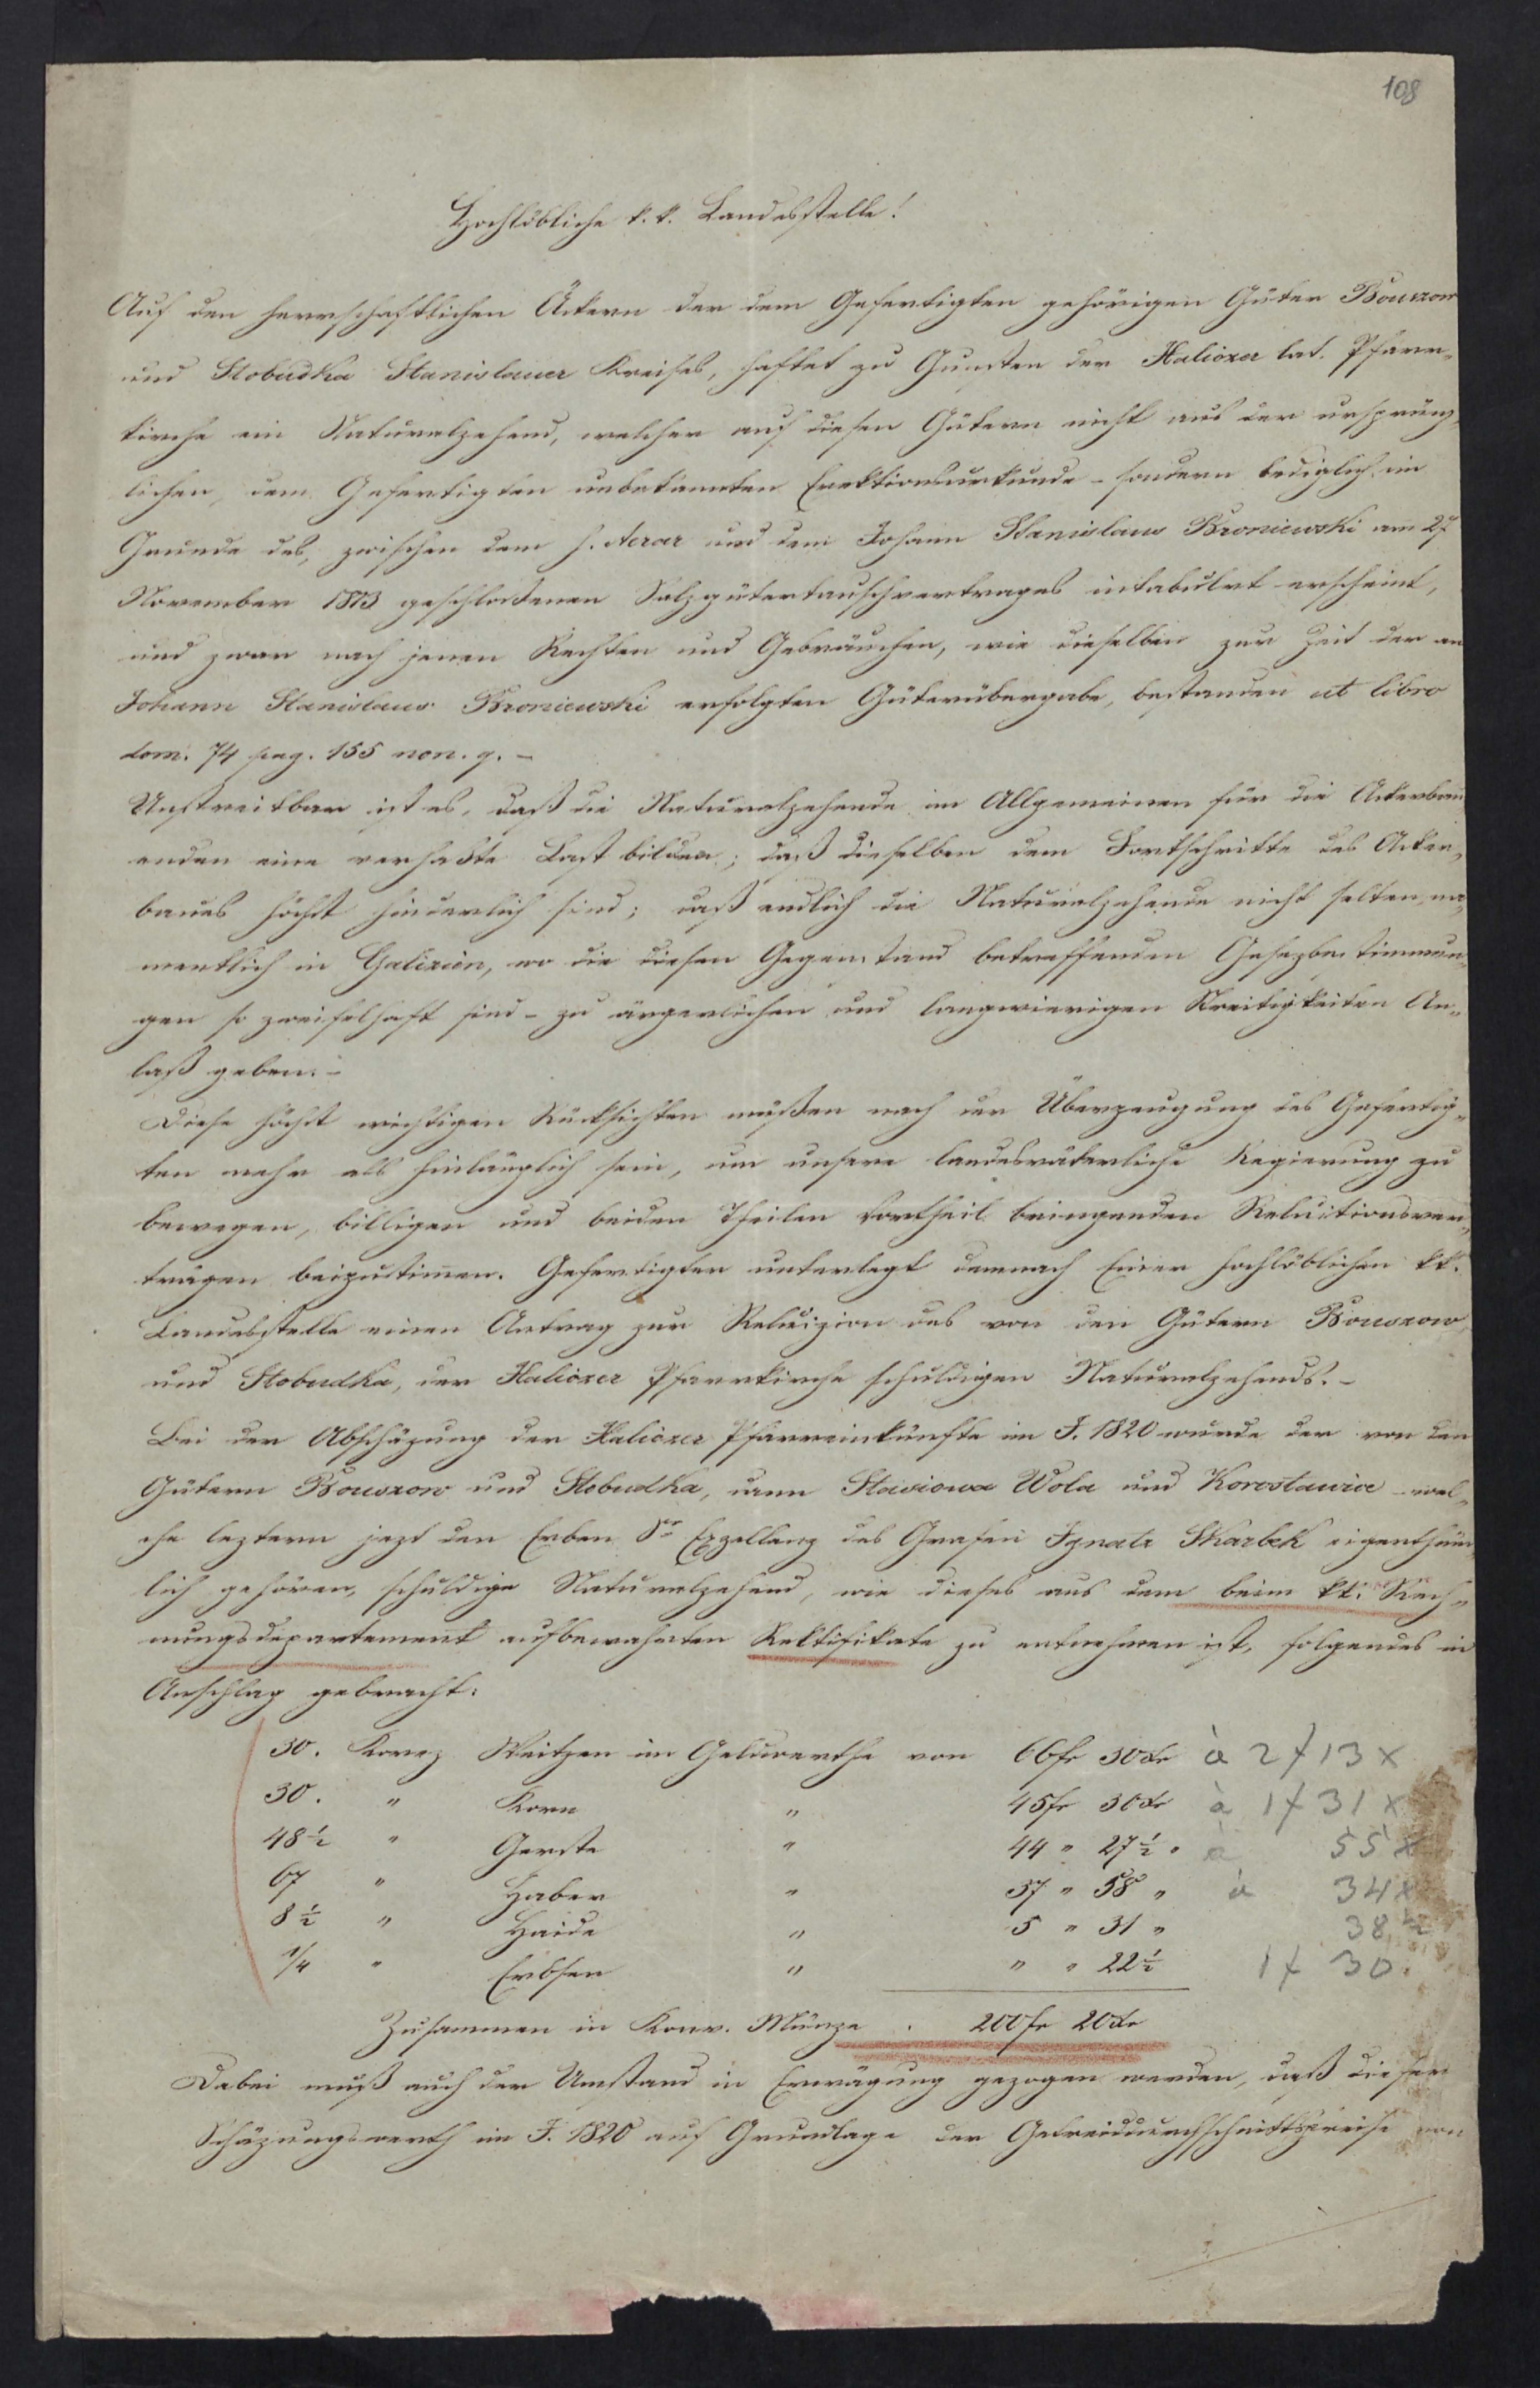 108
Hochlöbliche k. k. Landesstelle!
Auf den herrschaftlichen Äckern der dem Gefertigten gehörigen Güter Bouszow
und Slobudka Stanislauer Kreises, haftet zu Gunsten der Haliczer lat. Pfarr-
kirche ein Naturalzehend, welcher auf diesen Gütern nicht aus der ursprüng-
lichen, dem Gefertigten unbekannten Erektionsurkunde - sondern lediglich im
Grunde des, zwischen dem h. Aerar und dem Johann Stanislaus Broniewski am 27
November 1803 geschlossenen Salzgütertauschvertrages intabulirt erscheint,
und zwar nach jenen Rechten und Gebräuchen, wie dieselben zur Zeit der an
Johann Stanislaus Broniewski erfolgten Güterübergabe, bestanden ut libro
dom. 74 pag. 155 non. 9. -
Unstreitbar ist es, daß die Naturalzehende im Allgemeinen für die Ackerbau-
enden eine verhaßte Last bilden; daß dieselben dem Fortschritte des Acker-
baues höchst hinderlich sind; daß endlich die Naturalzehende nicht selten, na-
mentlich in Galizien, wo die diesen Gegenstand betreffenden Gesezbestimmun-
gen so zweifelhaft sind - zu ärgerlichen und langwierigen Streitigkeiten An-
laß geben. -
Diese höchst wichtigen Rücksichten müßen nach der Überzeugung des Gefertig-
ten mehr als hinlänglich sein, um unsere landesväterliche Regierung zu
bewegen, billigen und beiden Theilen Vortheil bringenden Reluitionsver-
trägen beizustimen. Gefertigter unterlegt demnach Einer hochlöblichen kk.
Landesstelle einen Antrag zur Reluizion des von den Gütern Bouszow
und Slobudka, der Haliczer Pfarrkirche schuldigen Naturalzehends. -
Bei der Abschäzung der Haliczer Pfarreinkünfte im J. 1820 wurde der von den
Gütern Bouszow und Slobudka, dann Stasiowa Wola und Korostowice - wel-
che leztern jezt den Erben Sr Exzellenz des Grafen Ignatz Skarbek eigenthüm-
lich gehören, schuldige Naturalzehend, wie dieses aus dem beim kk. Rech-
nungsdepartement aufbewahrten Rektifikate zu entnehmen ist, folgendes in
Anschlag gebracht:
30. Korez Weitzen im Geldwerthe von 66 fr 30 xr à 2 f 13 x
30. " Korn " 45 fr 30 xr à 1 f 31 x
48 1/2 " Gerste " 44 " 27 1/2 " à 55 x
67 " Haber " 37 " 58 " à 34 x
8 1/2 " Haide " 5 " 31 " 38 1/2
1/4 " Erbsen " " " 22 1/2 1 f 30.
Zusammen in Konv. Münze . 200 fr 20 xr
Dabei muß auch der Umstand in Erwägung gezogen werden, daß dieser
Schäzungswerth im J. 1820 auf Grundlage der Getreiddurchschnittspreise von